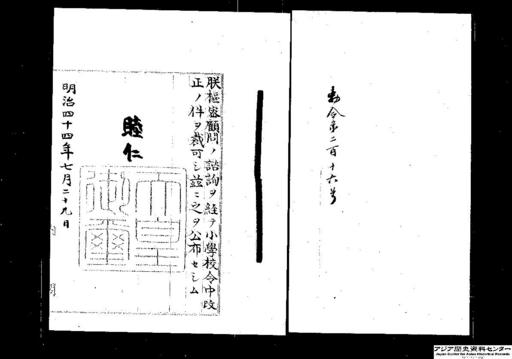 勅令第二百十六号
朕樞密顧問ノ諮詢ヲ経テ小學校令中改
正ノ件ヲ裁可シ茲ニ之ヲ公布セシム
睦仁
天皇御璽
明治四十四年七月二十九日
内
閣
アジア歴史資料センター
Japan Center for Asian Historical Records